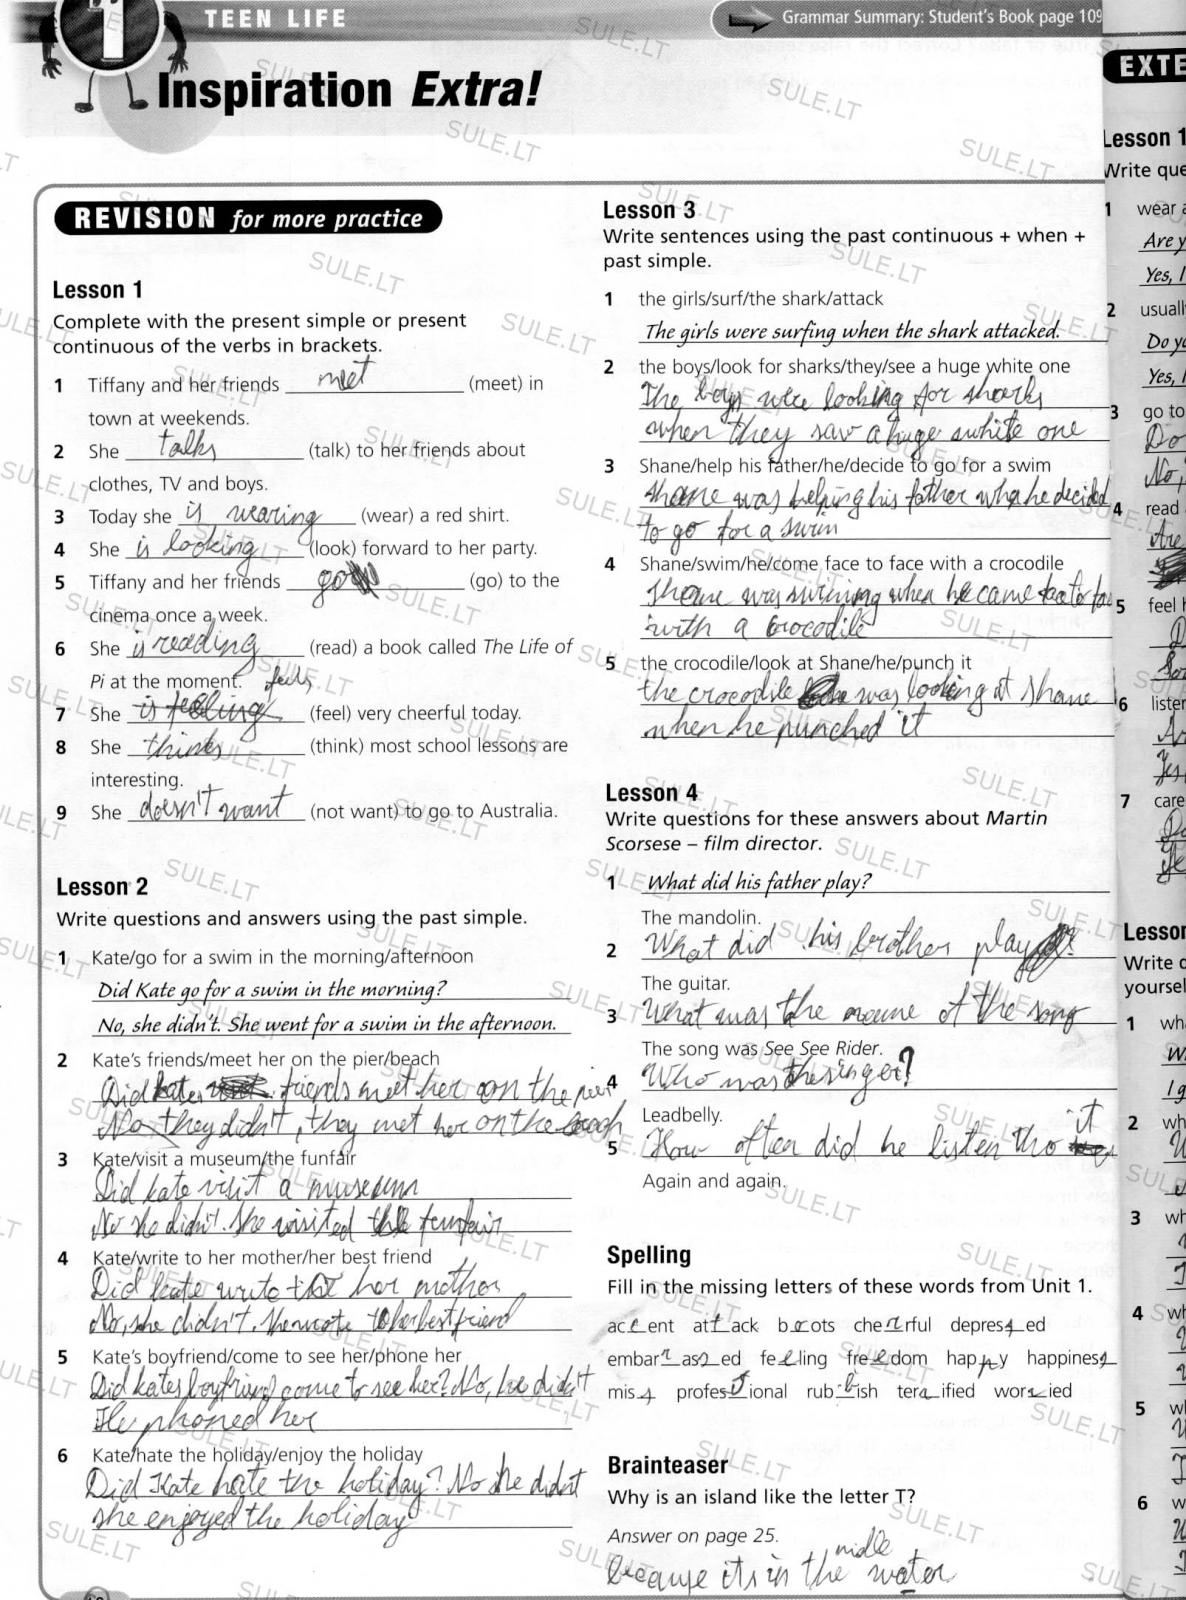 1
TEEN LIFE
Grammar Summary: Student's Book page 109
Inspiration Extra!
REVISION for more practice
Lesson 1
Complete with the present simple or present
continuous of the verbs in brackets.
1 Tiffany and her friends meet (meet) in
town at weekends.
2 She talks (talk) to her friends about
clothes, TV and boys.
3 Today she is wearing (wear) a red shirt.
4 She is looking (look) forward to her party.
5 Tiffany and her friends go (go) to the
cinema once a week.
6 She is reading (read) a book called The Life of
Pi at the moment. feels
7 She is feeling (feel) very cheerful today.
8 She thinks (think) most school lessons are
interesting.
9 She doesn't want (not want) to go to Australia.
Lesson 2
Write questions and answers using the past simple.
1 Kate/go for a swim in the morning/afternoon
Did Kate go for a swim in the morning?
No, she didn't. She went for a swim in the afternoon.
2 Kate's friends/meet her on the pier/beach
Did kates friends meet her on the pier
No they didn't, they met her on the beach
3 Kate/visit a museum/the funfair
Did kate visit a museum
No she didn't. she visited the funfair
4 Kate/write to her mother/her best friend
Did kate write to her mother
No, she didn't. she wrote to her best friend
5 Kate's boyfriend/come to see her/phone her
Did kates boyfriend come to see her? No, he didn't
He phoned her
6 Kate/hate the holiday/enjoy the holiday
Did Kate hate the holiday? No she didnt
she enjoyed the holiday
Lesson 3
Write sentences using the past continuous + when +
past simple.
1 the girls/surf/the shark/attack
The girls were surfing when the shark attacked.
2 the boys/look for sharks/they/see a huge white one
The boys were looking for sharks
when they saw a huge white one
3 Shane/help his father/he/decide to go for a swim
shane was helping his father whe he decided
to go for a swim
4 Shane/swim/he/come face to face with a crocodile
shane was swiming when he came
with a crocodile
5 the crocodile/look at Shane/he/punch it
the crocodile was looking at shane
when he punched it
Lesson 4
Write questions for these answers about Martin
Scorsese – film director.
1 What did his father play?
The mandolin.
2 What did his brother play?
The guitar.
3 What was the name of the song
The song was See See Rider.
4 Who was the singer?
Leadbelly.
it
5 How often did he listen tho
Again and again.
Spelling
Fill in the missing letters of these words from Unit 1.
accent attack boots cheerful depressed
embarrassed feeling freedom happy happiness
miss professional rubbish terrified worried
Brainteaser
Why is an island like the letter T?
Answer on page 25.
middle
because its in the water
EXTE
Lesson 1
Write que
1 wear a
Are y
Yes, I
2 usuall
Do yo
Yes, I
3 go to
Do
No,
4 read
Are
5 feel h
6 lister
7 care
Lesson
Write q
yoursel
1 wh
I g
2 wh
3 wh
4 wh
5 wh
6 w
SULE.LT